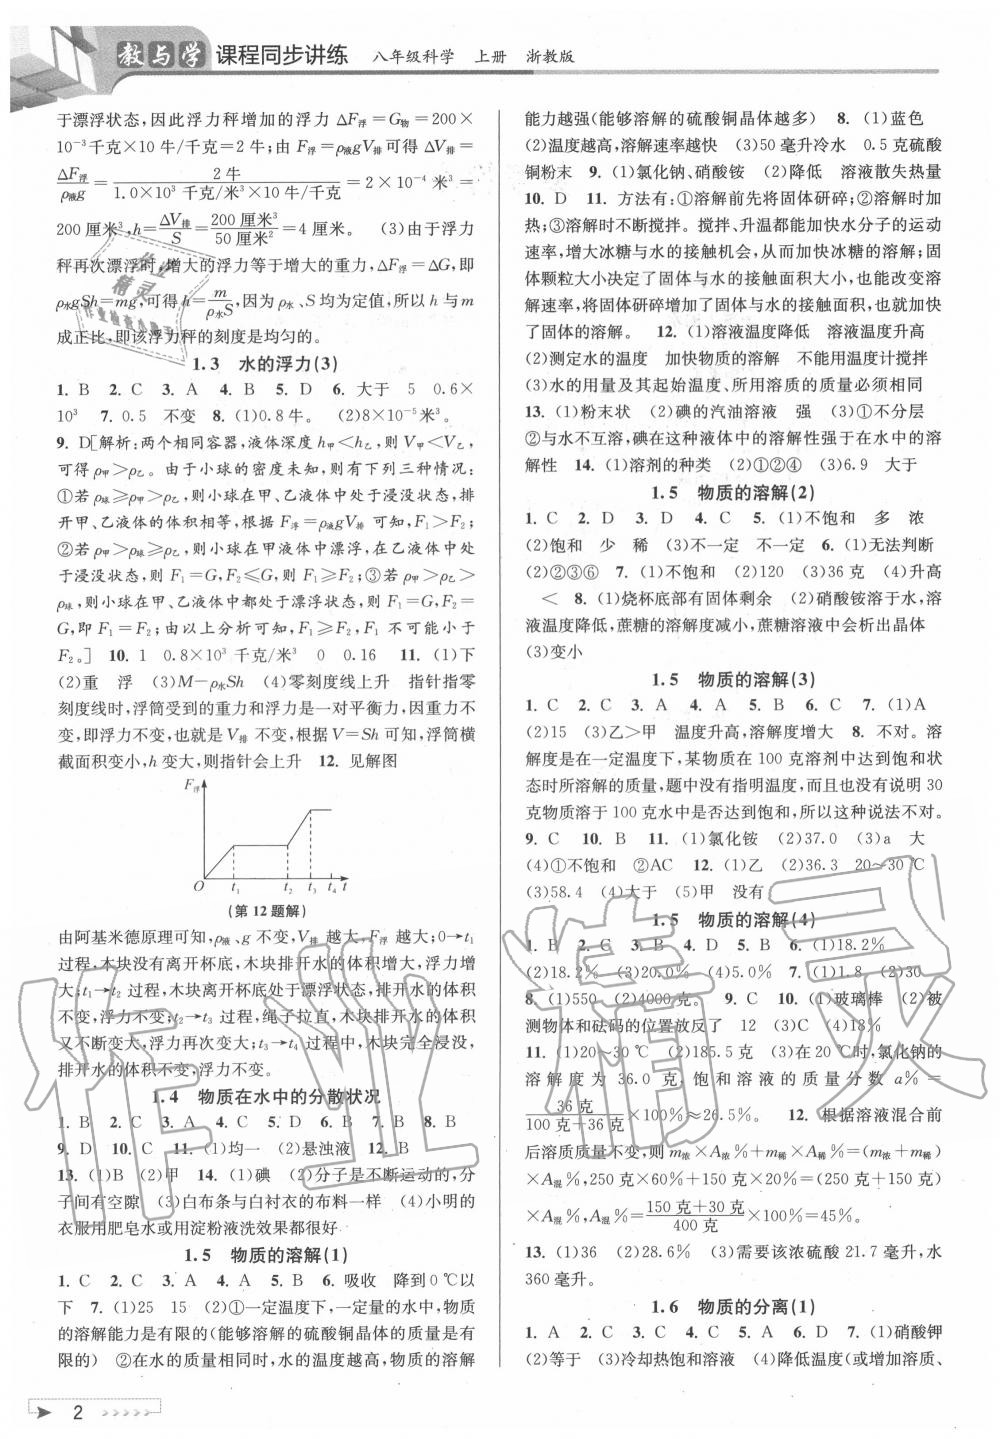 教与学 课程同步讲练 八年级科学 上册 浙教版
于漂浮状态,因此浮力秤增加的浮力 ΔF浮=G物=200×
10⁻³千克×10 牛/千克=2 牛;由 F浮=ρ液gV排可得 ΔV排=
ΔF浮/ρ液g=2 牛/(1.0×10³ 千克/米³×10 牛/千克)=2×10⁻⁴ 米³=
200 厘米³,h=ΔV排/S=200厘米³/50 厘米²=4厘米。 (3)由于浮力
秤再次漂浮时,增大的浮力等于增大的重力,ΔF浮=ΔG,即
ρ水gSh=mg,可得 h=m/ρ水S,因为 ρ水、S 均为定值,所以 h 与 m
成正比,即该浮力秤的刻度是均匀的。
1.3 水的浮力(3)
1. B 2. C 3. A 4. B 5. D 6. 大于 5 0.6×
10³ 7. 0.5 不变 8. (1)0.8牛。 (2)8×10⁻⁵米³。
9. D[解析:两个相同容器,液体深度 h甲<h乙,则 V甲<V乙,
可得 ρ甲>ρ乙。由于小球的密度未知,则有下列三种情况:
①若 ρ球≥ρ甲>ρ乙,则小球在甲、乙液体中处于浸没状态,排
开甲、乙液体的体积相等,根据 F浮=ρ液gV排 可知,F₁>F₂;
②若 ρ甲>ρ球≥ρ乙,则小球在甲液体中漂浮,在乙液体中处
于浸没状态,则 F₁=G,F₂≤G,则 F₁≥F₂;③若 ρ甲>ρ乙>
ρ球,则小球在甲、乙液体中都处于漂浮状态,则 F₁=G,F₂=
G,即 F₁=F₂;由以上分析可知,F₁≥F₂,F₁ 不可能小于
F₂。] 10. 1 0.8×10³ 千克/米³ 0 0.16 11. (1)下
(2)重 浮 (3)M-ρ水Sh (4)零刻度线上升 指针指零
刻度线时,浮筒受到的重力和浮力是一对平衡力,因重力不
变,即浮力不变,则 V排 不变,根据 V=Sh 可知,浮筒横
截面积变小,h 变大,则指针会上升 12. 见解图
F浮
O t₁ t₂ t₃ t₄ t
(第 12 题解)
由阿基米德原理可知,ρ液、g 不变,V排 越大,F浮 越大;0→t₁
过程,木块没有离开杯底,木块排开水的体积增大,浮力增
大;t₁→t₂ 过程,木块离开杯底处于漂浮状态,排开水的体积
不变,浮力不变;t₂→t₃ 过程,绳子拉直,木块排开水的体积
又不断变大,浮力再次变大;t₃→t₄ 过程中,木块完全浸没,
排开水的体积不变,浮力不变。
1.4 物质在水中的分散状况
1. B 2. A 3. D 4. C 5. D 6. C 7. B 8. B
9. D 10. C 11. (1)均一 (2)悬浊液 12. B
13. (1)B (2)甲 14. (1)碘 (2)分子是不断运动的,分
子间有空隙 (3)白布条与白衬衣的布料一样 (4)小明的
衣服用肥皂水或用淀粉液洗效果都很好
1.5 物质的溶解(1)
1. C 2. C 3. A 4. A 5. B 6. 吸收 降到0 ℃以
下 7. (1)25 15 (2)①一定温度下,一定量的水中,物质
的溶解能力是有限的(能够溶解的硫酸铜晶体的质量是有
限的) ②在水的质量相同时,水的温度越高,物质的溶解
能力越强(能够溶解的硫酸铜晶体越多) 8. (1)蓝色
(2)温度越高,溶解速率越快 (3)50 毫升冷水 0.5 克硫酸
铜粉末 9. (1)氯化钠、硝酸铵 (2)降低 溶液散失热量
10. D 11. 方法有:①溶解前先将固体研碎;②溶解时加
热;③溶解时不断搅拌。搅拌、升温都能加快水分子的运动
速率,增大冰糖与水的接触机会,从而加快冰糖的溶解;固
体颗粒大小决定了固体与水的接触面积大小,也能改变溶
解速率,将固体研碎增加了固体与水的接触面积,也就加快
了固体的溶解。 12. (1)溶液温度降低 溶液温度升高
(2)测定水的温度 加快物质的溶解 不能用温度计搅拌
(3)水的用量及其起始温度、所用溶质的质量必须相同
13. (1)粉末状 (2)碘的汽油溶液 强 (3)①不分层
②与水不互溶,碘在这种液体中的溶解性强于在水中的溶
解性 14. (1)溶剂的种类 (2)①②④ (3)6.9 大于
1.5 物质的溶解(2)
1. C 2. D 3. D 4. C 5. (1)不饱和 多 浓
(2)饱和 少 稀 (3)不一定 不一定 6. (1)无法判断
(2)②③⑥ 7. (1)不饱和 (2)120 (3)36克 (4)升高
< 8. (1)烧杯底部有固体剩余 (2)硝酸铵溶于水,溶
液温度降低,蔗糖的溶解度减小,蔗糖溶液中会析出晶体
(3)变小
1.5 物质的溶解(3)
1. C 2. C 3. A 4. A 5. A 6. C 7. (1)A
(2)15 (3)乙>甲 温度升高,溶解度增大 8. 不对。溶
解度是在一定温度下,某物质在 100 克溶剂中达到饱和状
态时所溶解的质量,题中没有指明温度,而且也没有说明 30
克物质溶于 100 克水中是否达到饱和,所以这种说法不对。
9. C 10. B 11. (1)氯化铵 (2)37.0 (3)a 大
(4)①不饱和 ②AC 12. (1)乙 (2)36.3 20~30 ℃
(3)58.4 (4)大于 (5)甲 没有
1.5 物质的溶解(4)
1. B 2. C 3. B 4. D 5. B 6. (1)18.2%
(2)18.2% (3)20.0% (4)5.0% 7. (1)1.8 (2)30
8. (1)550 (2)4000克。 9. C 10. (1)玻璃棒 (2)被
测物体和砝码的位置放反了 12 (3)C (4)18%
11. (1)20~30 ℃ (2)185.5克 (3)在 20 ℃时,氯化钠的
溶解度为 36.0 克,饱和溶液的质量分数 a%=
36 克/(100 克+36 克)×100%≈26.5%。 12. 根据溶液混合前
后溶质质量不变,则 m浓×A浓%+m稀×A稀%=(m浓+m稀)
×A混%,250 克×60%+150 克×20%=(250 克+150 克)
×A混%,A混%=(150 克+30 克)/400 克×100%=45%。
13. (1)36 (2)28.6% (3)需要该浓硫酸 21.7 毫升,水
360毫升。
1.6 物质的分离(1)
1. A 2. B 3. C 4. B 5. A 6. D 7. (1)硝酸钾
(2)等于 (3)冷却热饱和溶液 (4)降低温度(或增加溶质、
2
作业精灵